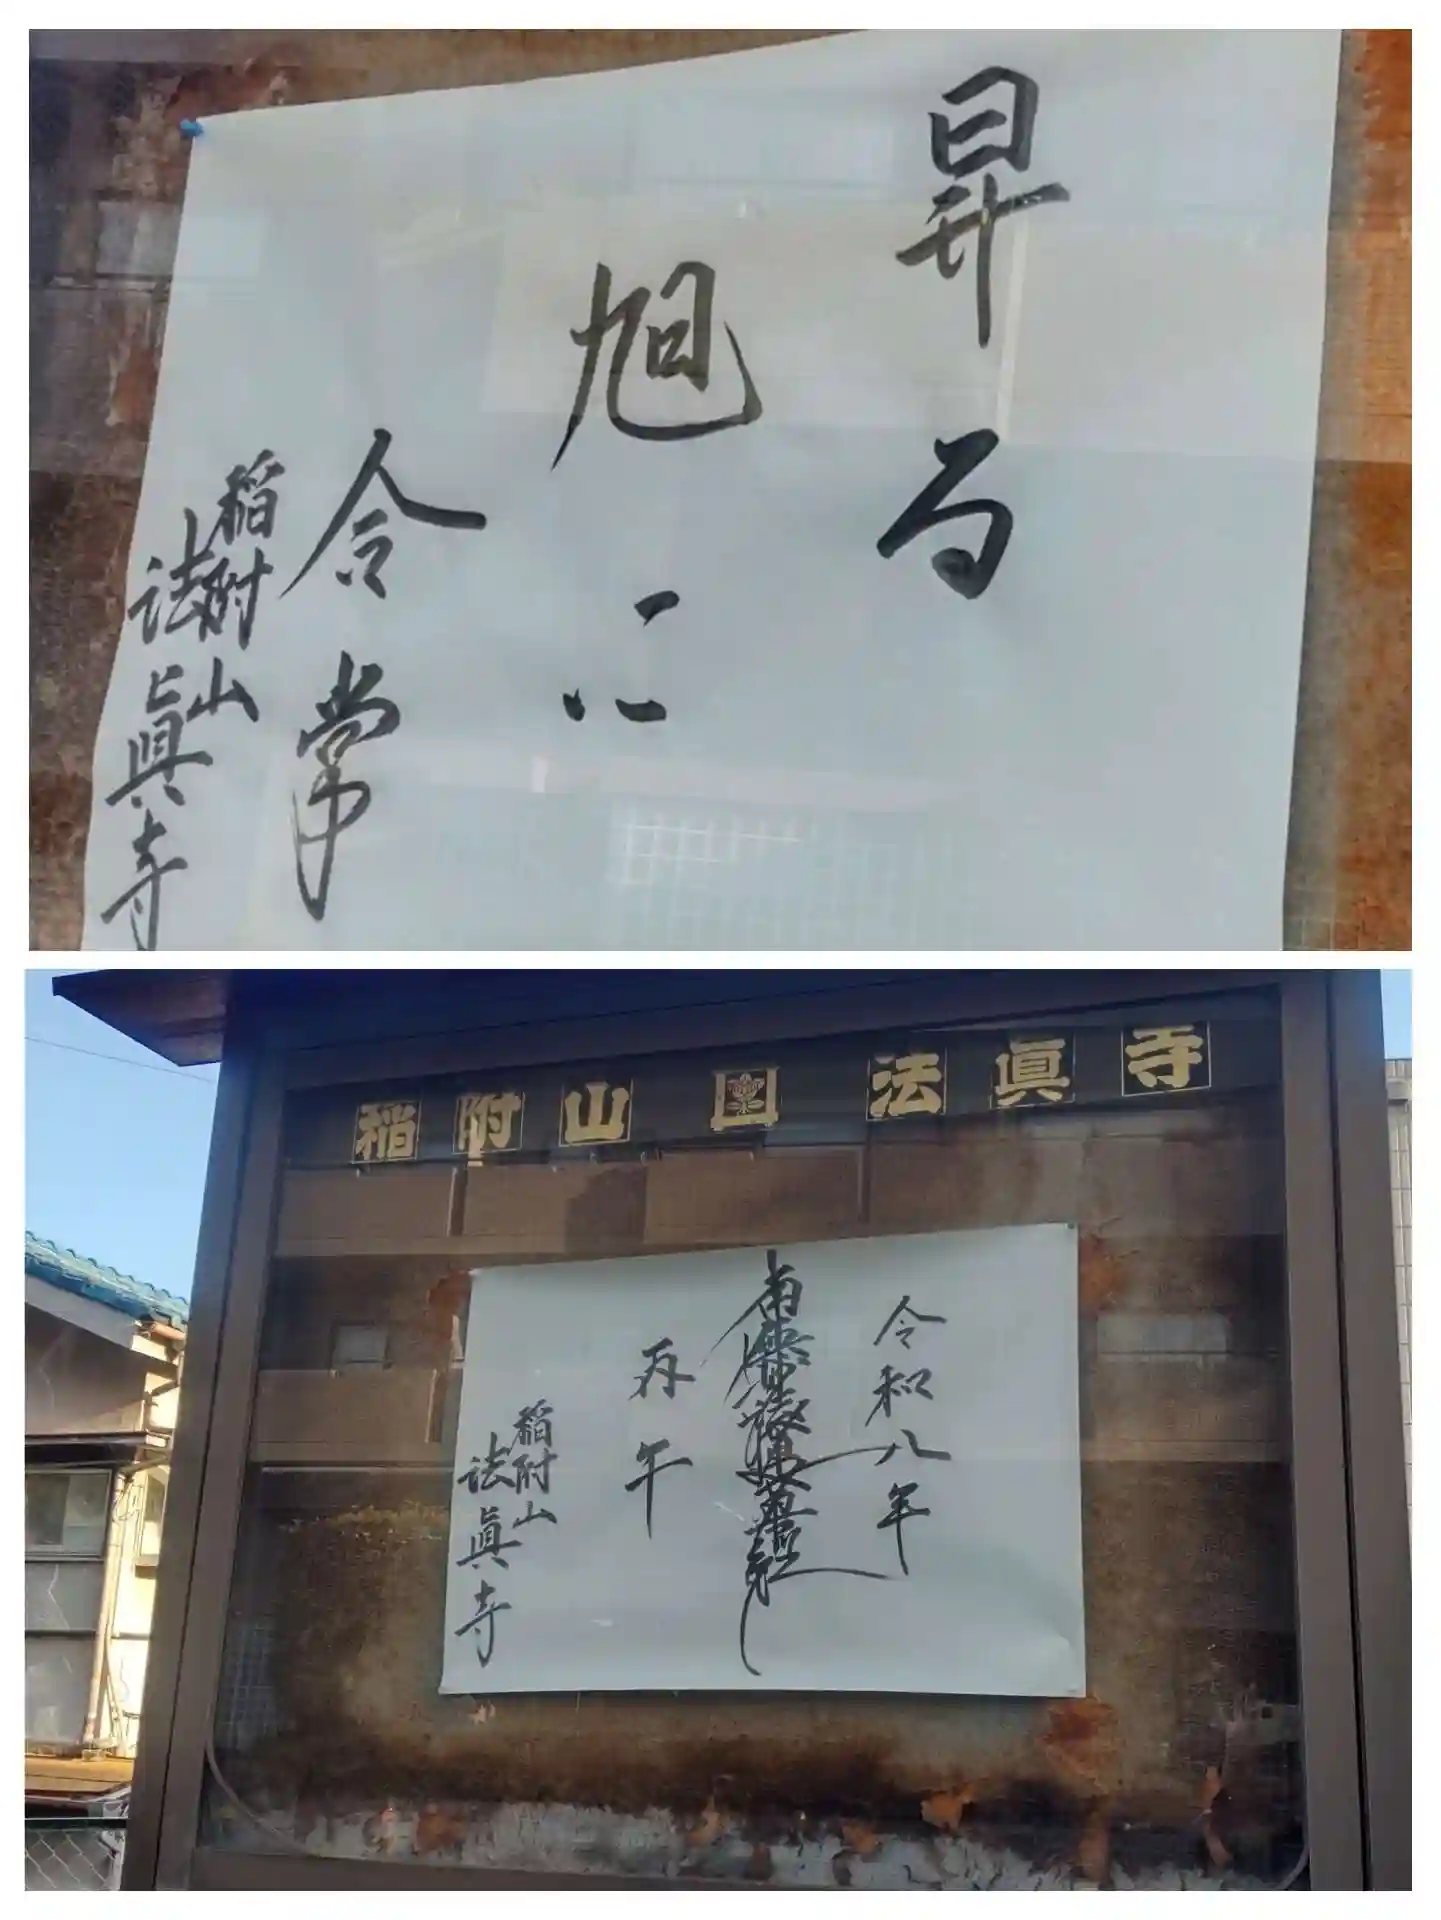 昇る
旭に
合掌
稲附山
法眞寺
稲附山 法眞寺
令和八年
南無妙法蓮華經
丙午
稲附山
法眞寺